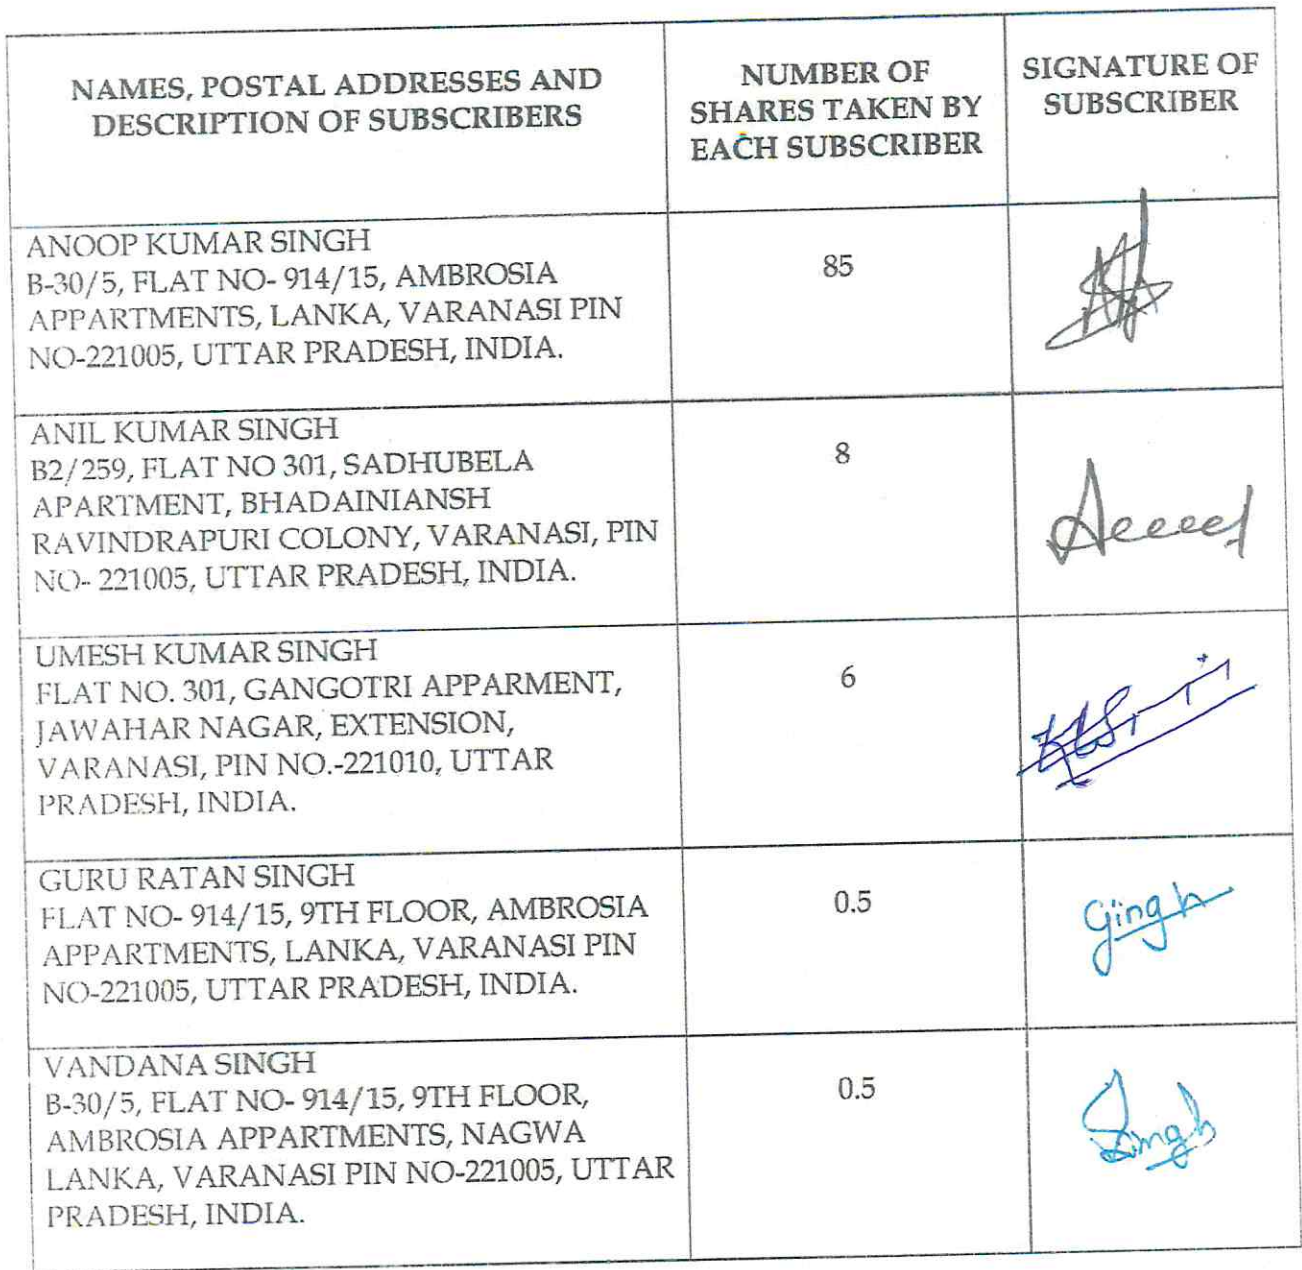 NAMES, POSTAL ADDRESSES AND
DESCRIPTION OF SUBSCRIBERS
NUMBER OF
SHARES TAKEN BY
EACH SUBSCRIBER
SIGNATURE OF
SUBSCRIBER
ANOOP KUMAR SINGH
B-30/5, FLAT NO- 914/15, AMBROSIA
APPARTMENTS, LANKA, VARANASI PIN
NO-221005, UTTAR PRADESH, INDIA.
85
ANIL KUMAR SINGH
B2/259, FLAT NO 301, SADHUBELA
APARTMENT, BHADAINIANSH
RAVINDRAPURI COLONY, VARANASI, PIN
NO- 221005, UTTAR PRADESH, INDIA.
8
UMESH KUMAR SINGH
FLAT NO. 301, GANGOTRI APPARMENT,
JAWAHAR NAGAR, EXTENSION,
VARANASI, PIN NO.-221010, UTTAR
PRADESH, INDIA.
6
GURU RATAN SINGH
FLAT NO- 914/15, 9TH FLOOR, AMBROSIA
APPARTMENTS, LANKA, VARANASI PIN
NO-221005, UTTAR PRADESH, INDIA.
0.5
VANDANA SINGH
B-30/5, FLAT NO- 914/15, 9TH FLOOR,
AMBROSIA APPARTMENTS, NAGWA
LANKA, VARANASI PIN NO-221005, UTTAR
PRADESH, INDIA.
0.5